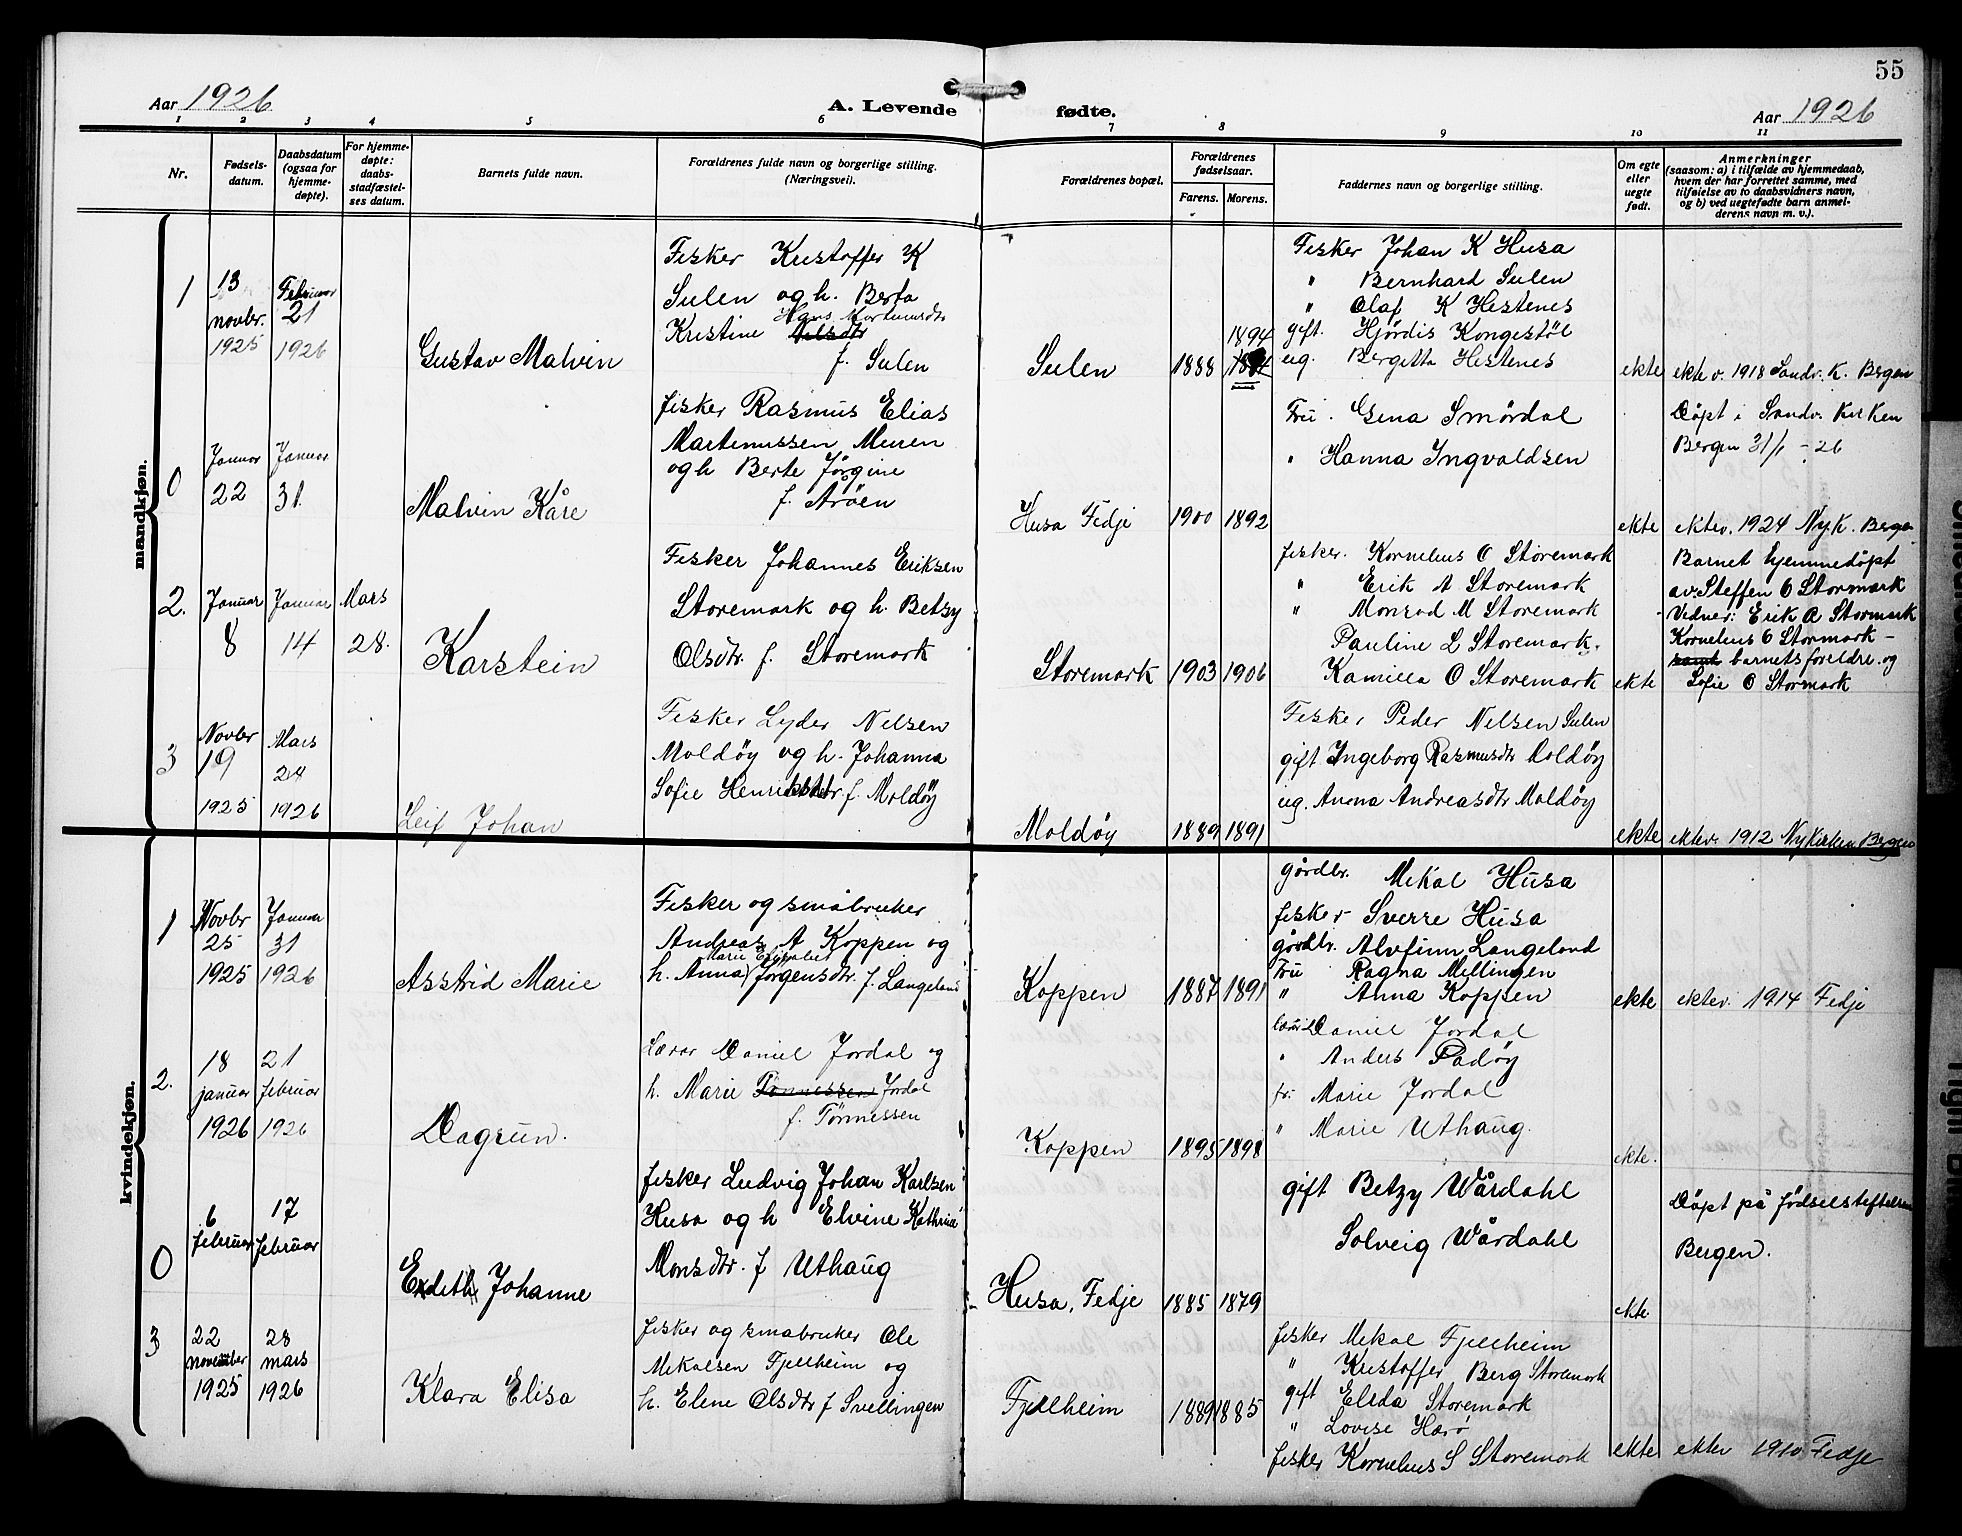 55
Aar 1926
A. Levende fødte.
Aar 1926
1 2 3 4 5 6 7 8 9 10 11
Nr.
Fødsels-
datum.
Daabsdatum
(ogsaa for
hjemme-
døpte).
For hjemme-
døpte:
daabs-
stadfæstel-
ses datum.
Barnets fulde navn.
Forældrenes fulde navn og borgerlige stilling.
(Næringsvei).
Forældrenes bopæl.
Forældrenes
fødselsaar.
Farens. Morens.
Faddernes navn og borgerlige stilling.
Om egte
eller
uegte
født.
Anmerkninger
(saasom: a) i tilfælde av hjemmedaab,
hvem der har forrettet samme, med
tilføielse av to daabsvidners navn,
og b) ved uegtefødte barn anmel-
derens navn m. v.).
mandkjøn.
1
13
novbr.
1925
Februar
21
1926
Gustav Malvin
Fisker Kristoffer K
Sulen og h. Berta
Hans Martinusdtr
Kristine Nilsdtr
f. Sulen
Sulen
1888
1894
Fisker Johan K Husa
" Bernhard Sulen
" Olaf K Hestenes
gift. Hjørdis Kongestøl
ug. Bergitta Hestenes
ekte
ektev. 1918 Sandv. K. Bergen
0
Januar
22
Januar
31
Malvin Kåre
fisker Rasmus Elias
Martinussen Muren
og h Berte Jørgine
f. Arøen
Husa Fedje
1900
1892
Fru. Gina Smørdal
" Hanna Ingvaldsen
ekte
Døpt i Sandv. Kirken
Bergen 31/1 - 26
ektev. 1924 Ny.K. Bergen
2.
Januar
8
Januar
14
Mars
28.
Karstein
Fisker Johannes Eriksen
Storemark og h. Betzy
Olsdtr. f. Storemark
Storemark
1903
1906
fisker. Kornelius O Storemark
" Erik A Storemark
" Monrad M Storemark
Pauline L Storemark.
Kamilla O Storemark
ekte
Barnet hjemmedøpt
av Steffen O Stormark
Vidner: Erik A Stormark
Kornelius O Stormark -
samt barnets foreldre og
Sofie O Stormark
3
Novbr
19
1925
Mars
24
1926
Leif Johan
Fisker Lyder Nilsen
Moldøy og h. Johanna
Sofie Henriksdtr. f. Moldøy
Moldøy
1889
1891
Fisker Peder Nilsen Sulen
gift Ingeborg Rasmusdtr Moldøy
ug. Anna Andreasdtr Moldøy
ekte
ektev. 1912 Nykirken Bergen
kvindekjøn.
1
Novbr
25
1925
Januar
31
1926
Asstrid Marie
Fisker og småbruker
Andreas A Koppen og
Marie Elisabet
h. Anna Jørgensdtr. f. Langeland
Koppen
1887
1891
gårdbr. Mikal Husa
fisker Sverre Husa
gårdbr. Alvfinn Langeland
Fru Ragna Millingen
" Anna Koppen
ekte
ektev. 1914 Fedje
2.
18
januar
1926
21
februar
1926
Dagrun.
Lærer Daniel Jordal og
h. Marie Tønnessen Jordal
f. Tønnessen
Koppen
1895
1898
lærer Daniel Jordal
" Anders Padøy
fr. Marie Jordal
" Marie Uthaug.
ekte.
0
6
februar
17
februar
Edith Johanne
fisker Ludvig Johan Karlsen
Husa og h Elvine Kathrine
Monsdtr. f Uthaug
Husa, Fedje
1885
1879
gift Betzy Wårdahl
Solveig Wårdahl
ekte.
Døpt på fødselsstiftelsen
Bergen.
3
22
november
1925
28
mars
1926
Klara Elisa
fisker og småbruker Ole
Mikalsen Fjellheim og
h. Elene Olsdtr f Svellingen
Fjellheim
1889
1885
fisker Mikal Fjellheim
" Kristoffer Berg Storemark
gift Elida Storemark
" Lovise Harø
fisker Kornelius S Storemark
ekte
ektev 1910 Fedje